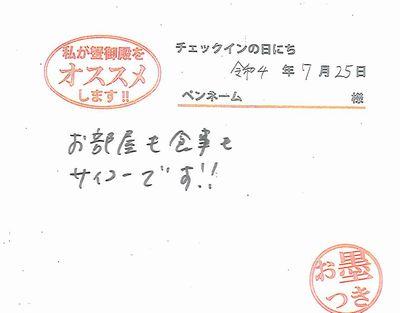 私が蟹御殿を
オススメ
します!!
チェックインの日にち
令和4年7月25日
ペンネーム 様
お部屋も食事も
サイコーです!!
お墨
つき